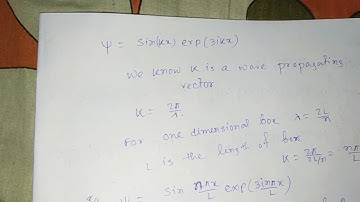 ψ = sin(kx) exp(3ikx)
We know K is a wave propagating
vector
K = 2π/λ.
For one dimensional box λ = 2L/n
L is the length of box
K = 2π/2L/n = nπ/L
ψ = sin nπx/L exp(3inπx/L)